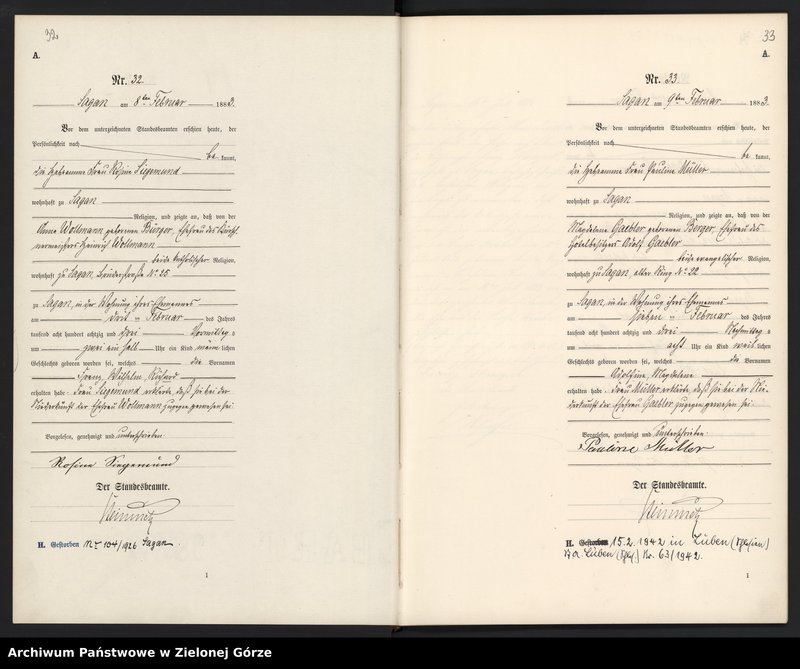 32
A.
Nr. 32.
Sagan am 8ten Februar 1883.
Vor dem unterzeichneten Standesbeamten erschien heute, der
Persönlichkeit nach
be kannt,
die Hebamme Frau Rosina Siegemund
wohnhaft zu Sagan
Religion, und zeigte an, daß von der
Anna Wollmann geborenen Bürger, Ehefrau des
Heinrich Wollmann
beide katholischer Religion,
wohnhaft zu Sagan, No 25
zu Sagan, in der Wohnung ihres Ehemannes
am drei Februar des Jahres
tausend acht hundert achtzig und drei Vormittag s
um zwei ein halb Uhr ein Kind männ lichen
Geschlechts geboren worden sei, welches die Vornamen
Franz Wilhelm Richard
erhalten habe. Frau Siegemund erklärte, daß sie bei der
Niederkunft der Ehefrau Wollmann zugegen gewesen sei.
Vorgelesen, genehmigt und unterschrieben
Rosina Siegemund
Der Standesbeamte.
H. Gestorben Nr 104/1926 Sagan.
1
33
A.
Nr. 33.
Sagan am 9ten Februar 1883.
Vor dem unterzeichneten Standesbeamten erschien heute, der
Persönlichkeit nach
be kannt,
die Hebamme Frau Pauline Müller
wohnhaft zu Sagan
Religion, und zeigte an, daß von der
Magdalena Gaebler geborenen Berger, Ehefrau des
Hotelbesitzers Adolf Gaebler
beide evangelischer Religion,
wohnhaft zu Sagan, alter Ring No 22
zu Sagan, in der Wohnung ihres Ehemannes
am sieben Februar des Jahres
tausend acht hundert achtzig und drei Nachmittag s
um acht Uhr ein Kind weib lichen
Geschlechts geboren worden sei, welches die Vornamen
Adolfine Magdalena
erhalten habe. Frau Müller erklärte, daß sie bei der Nie-
derkunft der Ehefrau Gaebler zugegen gewesen sei.
Vorgelesen, genehmigt und unterschrieben
Pauline Müller
Der Standesbeamte.
H. Gestorben 15.2.1942 in Lüben (Schlesien)
St. A. Lüben (Schles.) Nr. 63/1942.
1
Archiwum Państwowe w Zielonej Górze